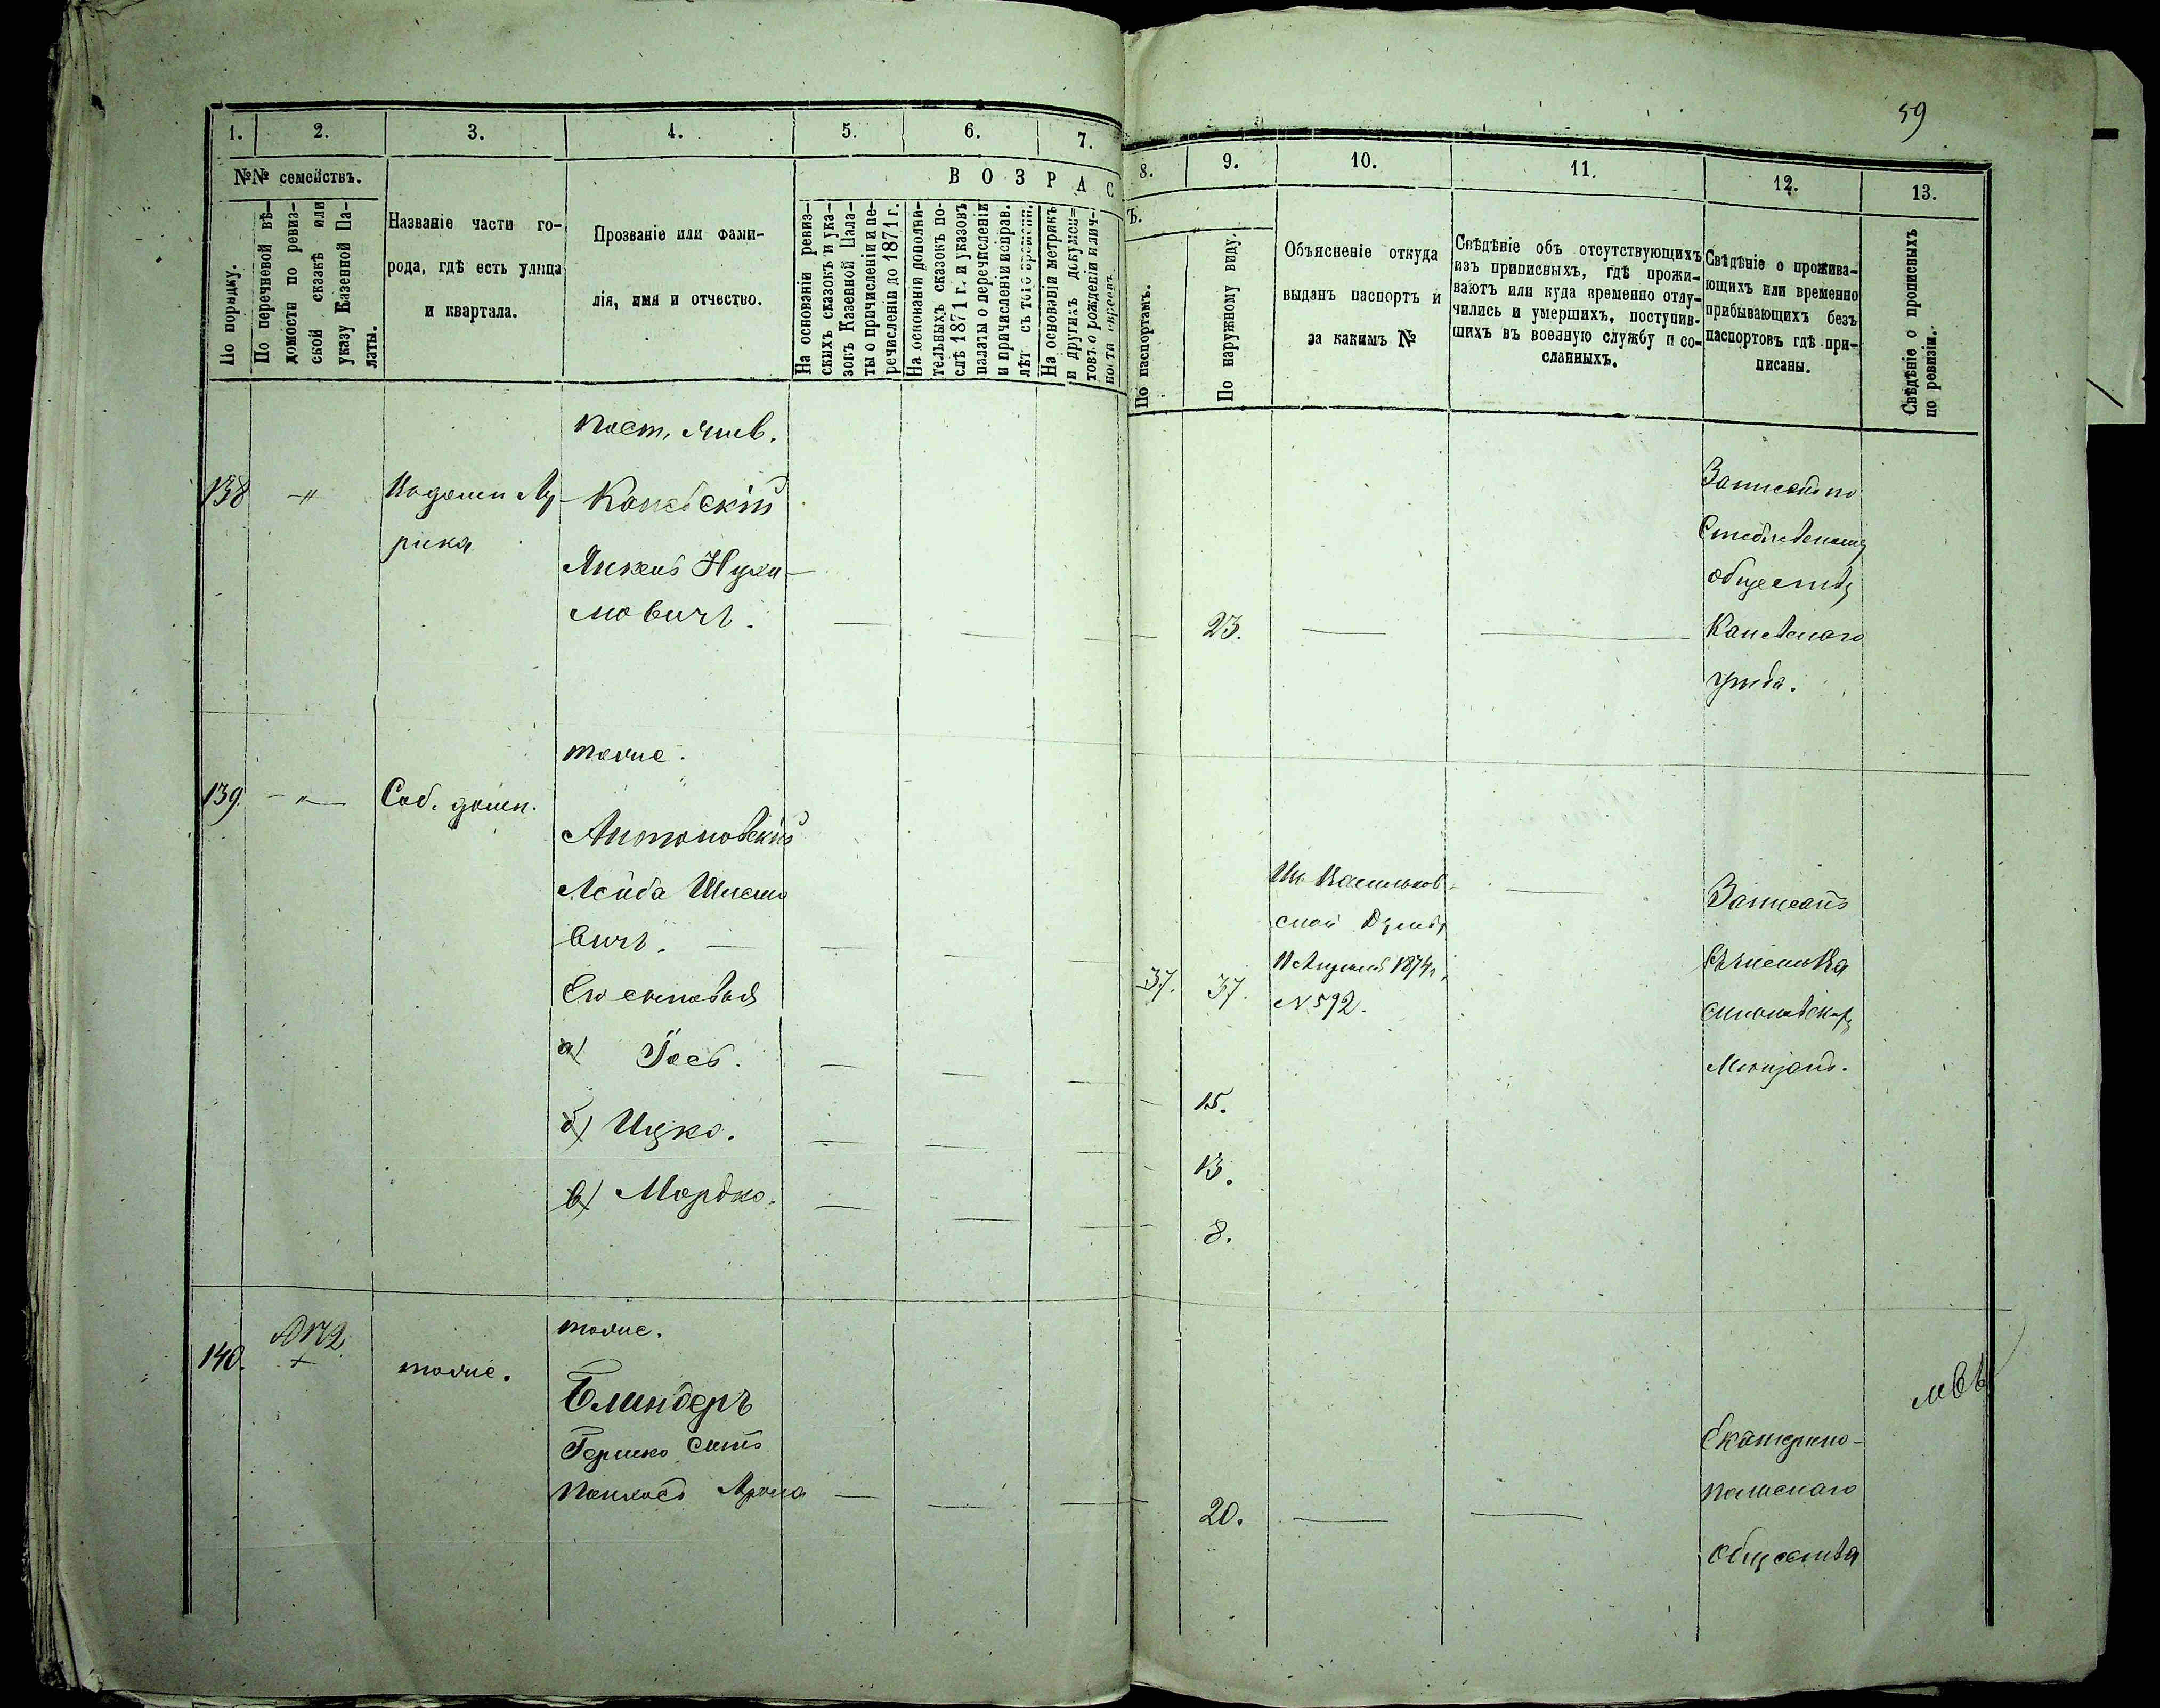 59
1. 2. 3. 4. 5. 6. 7. 8. 9. 10. 11. 12. 13.
№№ семействъ.
По порядку.
По перечневой вѣ-
домости по ревиз-
ской сказкѣ или
указу Казенной Па-
латы.
Названіе части го-
рода, гдѣ есть улица
и квартала.
Прозваніе или фами-
лія, имя и отчество.
ВОЗРАСТЪ.
На основаніи ревиз-
скихъ сказокъ и ука-
зокъ Казенной Пала-
ты о причисленіи и пе-
речисленіи до 1871 г.
На основаніи дополни-
тельныхъ сказокъ по-
слѣ 1871 г. и указовъ
палаты о перечисленіи
и причисленіи исправ.
лѣт съ того времени.
На основаніи метрикъ
и другихъ докумен-
товъ о рожденіи и лич-
ности евреевъ.
По паспортамъ.
По наружному виду.
Объясненіе откуда
выданъ паспортъ и
за какимъ №
Свѣдѣніе объ отсутствующихъ
изъ приписныхъ, гдѣ прожи-
ваютъ или куда временно отлу-
чились и умершихъ, поступив-
шихъ въ военную службу и со-
сланныхъ.
Свѣдѣніе о прожива-
ющихъ или временно
прибывающихъ безъ
паспортовъ гдѣ при-
писаны.
Свѣдѣніе о прописныхъ
по ревизіи.
Пост. жив.
138 —"
Каневскій
Янкель Нухи-
мовичъ.
23.
Записанъ по
Стеблевскому
обществу
Каневскаго
уѣзда.
тоже.
139. — " — Соб. домъ.
Антоновскій
Лейба Шмемо
вичъ.
Его сыновья
а) Іось.
б) Ицко.
в) Мордко.
37. 37.
15.
13.
8.
Изъ Васильков-
ской Думы
11 Апрѣля 1874 г.
№ 592.
Записанъ
Мѣщанъ.
тоже.
140. тоже.
Блиндеръ
Гершко сынъ
Арона
20.
Екатерино-
польскаго
общества